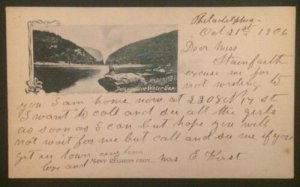 Philadelphia
Oct 21st 1906
Dear Miss
excuse me for
not writing to
you I am home now at 2308 N 17 st
I want to call and see all the girls
as soon as I can but hope you will
not wait for me but call and see me if you
get in town
love and
Delaware Water Gap
Many Regards from
Mrs E Hirst